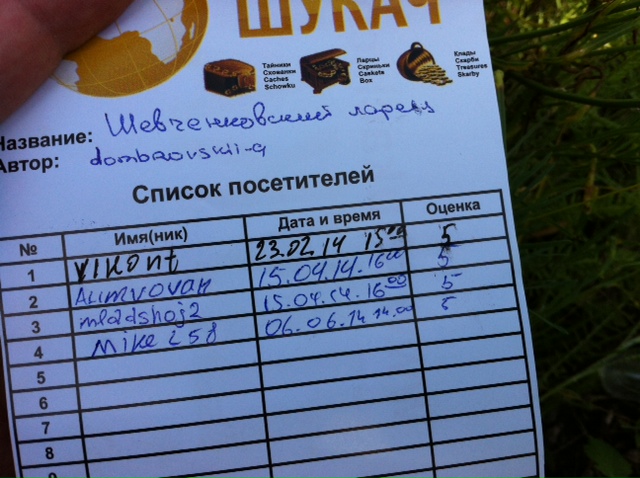 ШУКАЧ
Тайники
Схованки
Caches
Schowku
Ларцы
Скриньки
Caskets
Box
Клады
Скарби
Treasures
Skarby
Название: Шевченковский ларец
Автор: dombrovskii-a
Список посетителей
№ Имя(ник) Дата и время Оценка
1 VIKont 23.02.14 15:00 5
2 Alimvovan 15.04.14. 16:00 5
3 mladshoj2 15.04.14. 16:00 5
4 Mike L58 06.06.14 14:00 5
5
6
7
8
9